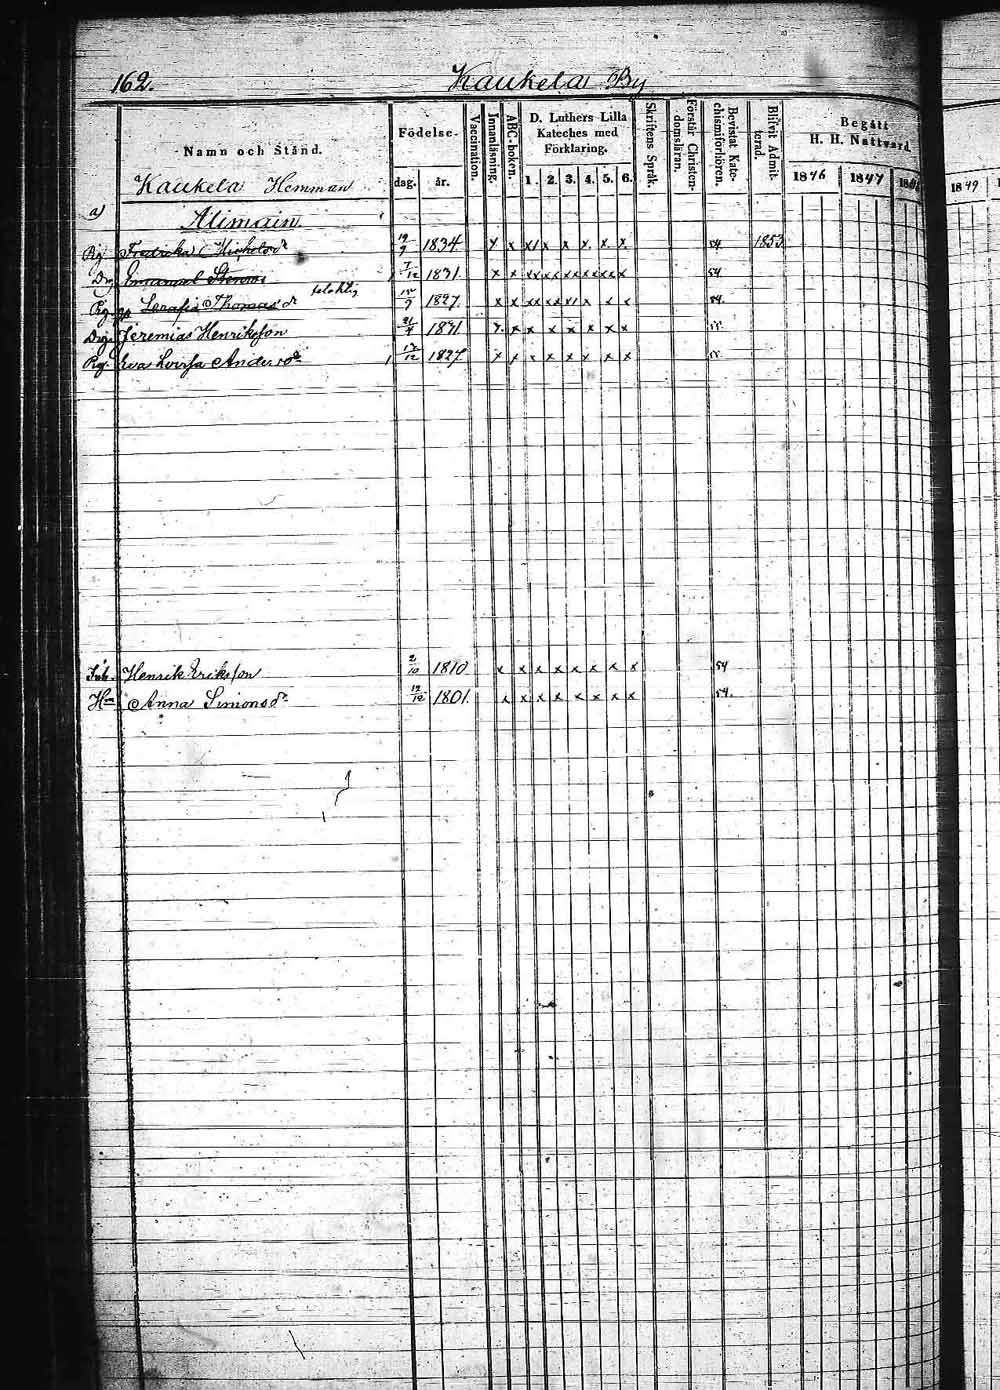 162. Kaukela By
Namn och Stånd.
Födelse-
dag. år.
Vaccination.
Innanläsning.
ABC-boken.
D. Luthers Lilla
Kateches med
Förklaring.
1. 2. 3. 4. 5. 6.
Skriftens Språk.
Förstår Christen-
domsläran.
Bevistat Kate-
chismiförhören.
Blifvit Admit-
terad.
Begått
H. H. Nattvard.
1846 1847 1849
Kaukela Hemman
a) Alimain.
Pig. Fredrika Michelsdr 19/9 1834 x x x x x x x x 54 1853
Drg Emanuel 7/12 1831 x x xx xx xx xx x x 54
Pig. Serafia Thomasdr 9 1827 x x xx xx x x x x 54.
Drg. Jeremias Henriksson 21 1831 x x x x x x x x
Pig. Eva Lovisa Andersdr 12 1827 x x x x x x x x
Henrik Eriksson 2/10 1810 x x x x x x x x 54
Hn Anna Simonsdr 19/12 1801 x x x x x x x x 54.